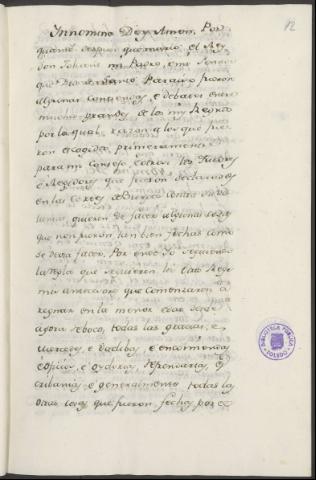 12
In nomine Dey Amen. Por
quanto despues que murio el Rey
Don Johan mi Padre, e mi Señor
que Dios de Santo Paraiso fueron
algunas contiendas, e debates entre
muchos grandes de los mis Regnos
por la qual razon a los que fue
ron escogidos primeramente
para mi Consejo, e otrosi los Tutores
e Regidores que fueron declarados
en las Cortes de Burgos contra su vo
luntad, quieren de facer algunas cosas
que non fueron tan bien fechas como
se devia facer. Por ende Yo siguiendo
la regla que siguieron los otros Reyes
mis antecesores que comenzaron a
regnar en la menor edad desde
agora reboco, todas las gracias, e
mercedes, e dadibas, e encomiendas
oficios, e oydores, repensarias, es
cribanias, e generalmente todas las
otras cosas que fueron fechas por
BIBLIOTECA PUBLICA
TOLEDO